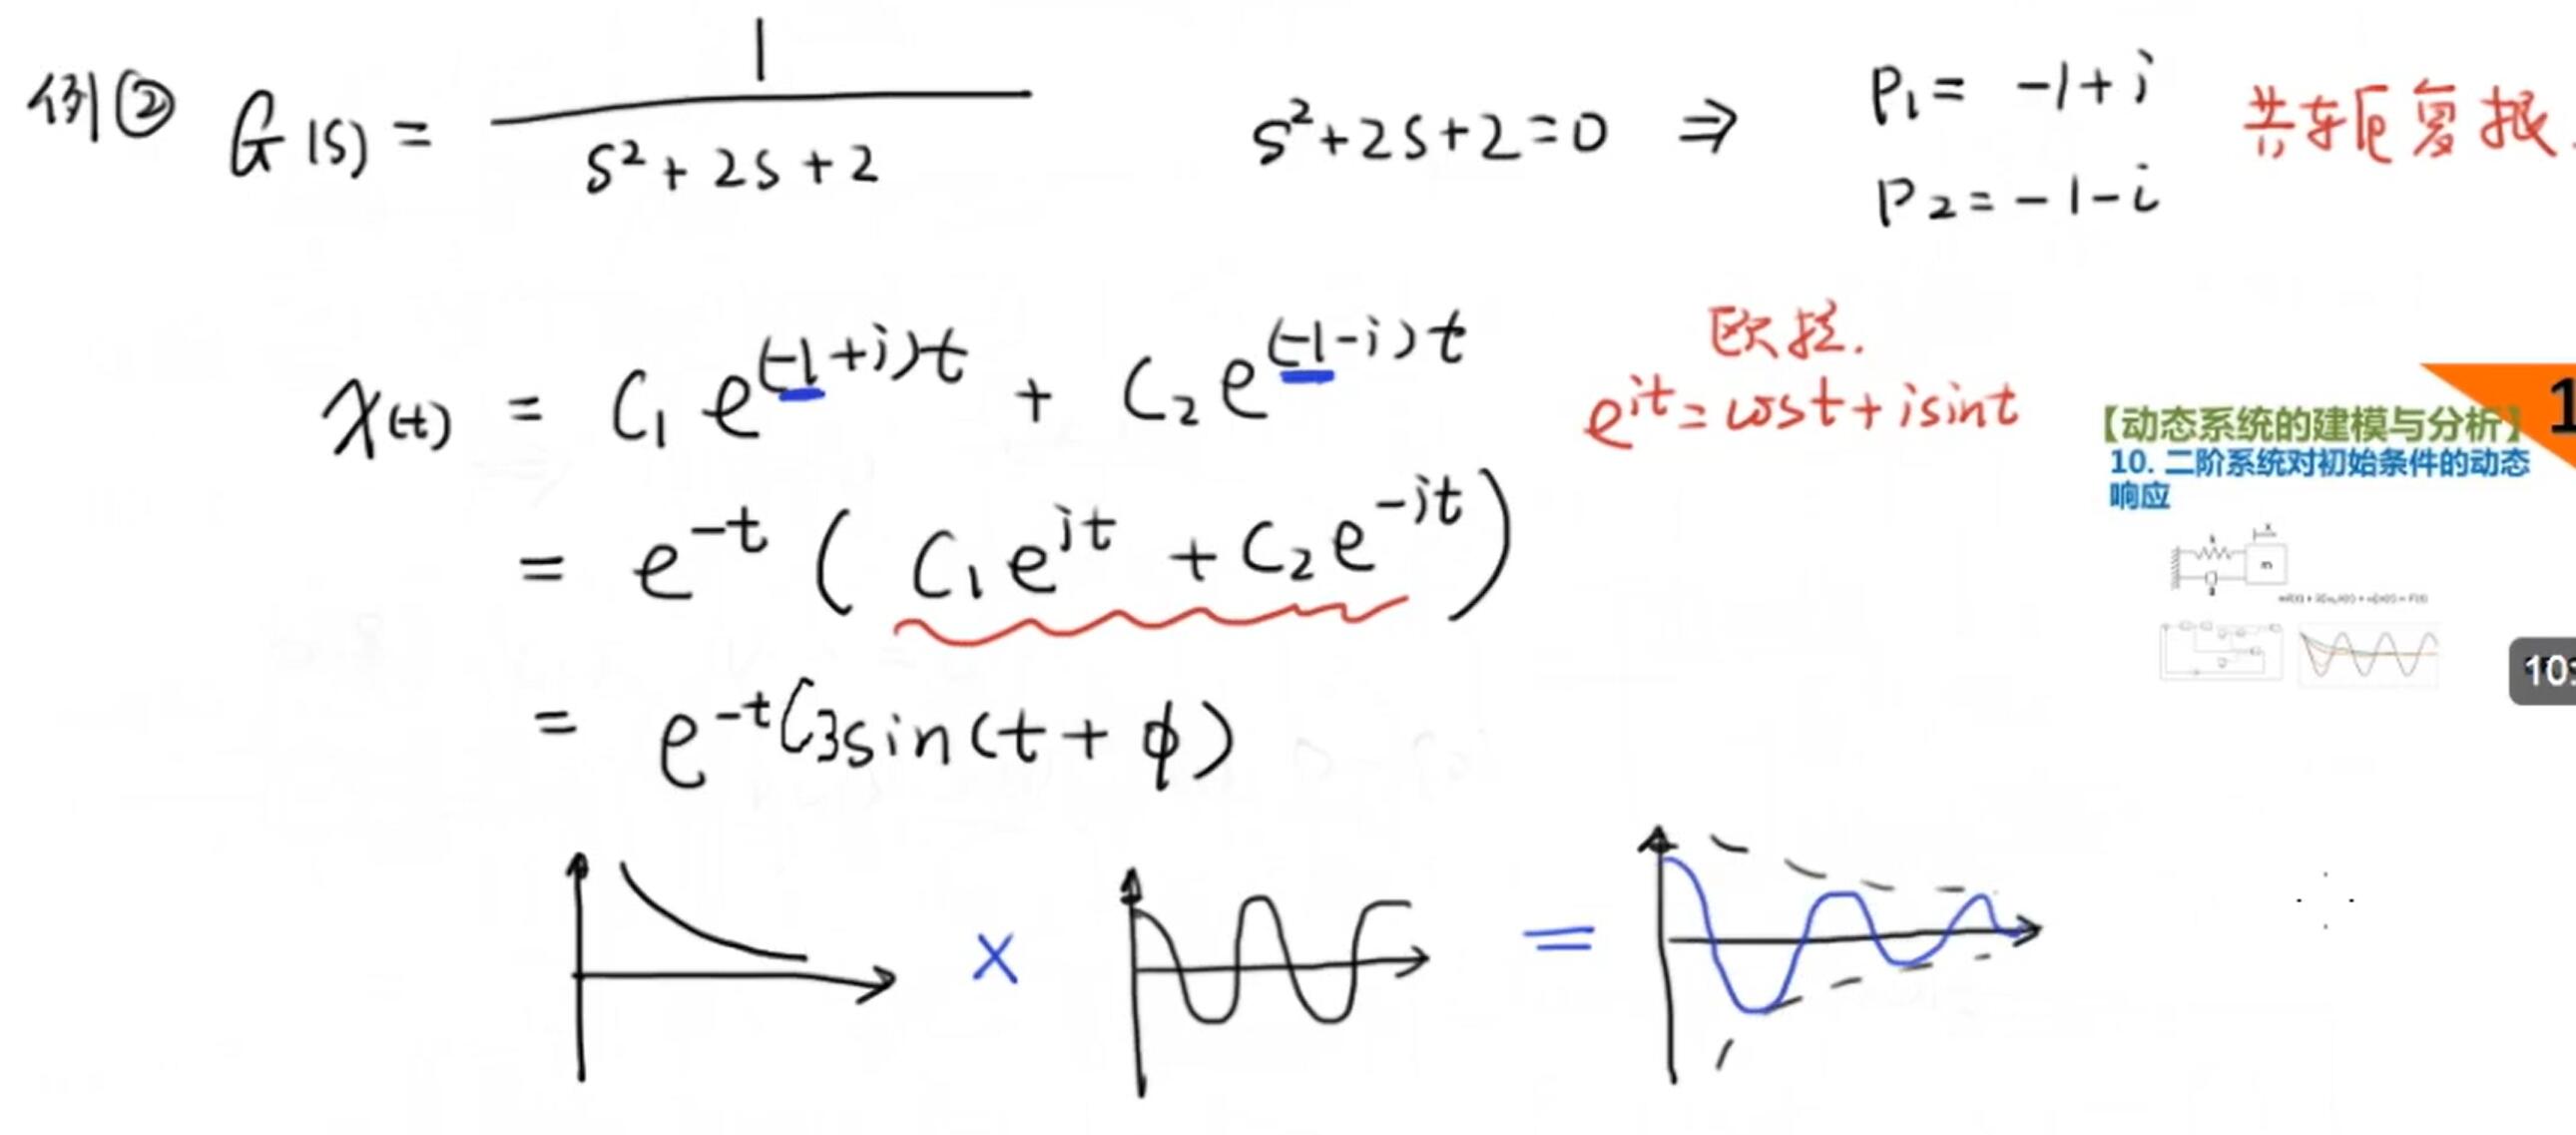 例② G(s) = 1 / (s² + 2s + 2)
s² + 2s + 2 = 0 ⇒ P₁ = -1 + i
P₂ = -1 - i
共轭复根.
x(t) = C₁e^{(-1+i)t} + C₂e^{(-1-i)t}
欧拉.
e^{it} = cost + isint
= e^{-t} ( C₁e^{it} + C₂e^{-it} )
= e^{-t} C₃sin(t + ϕ)
×
=
1
【动态系统的建模与分析】
10. 二阶系统对初始条件的动态
响应
m
10: